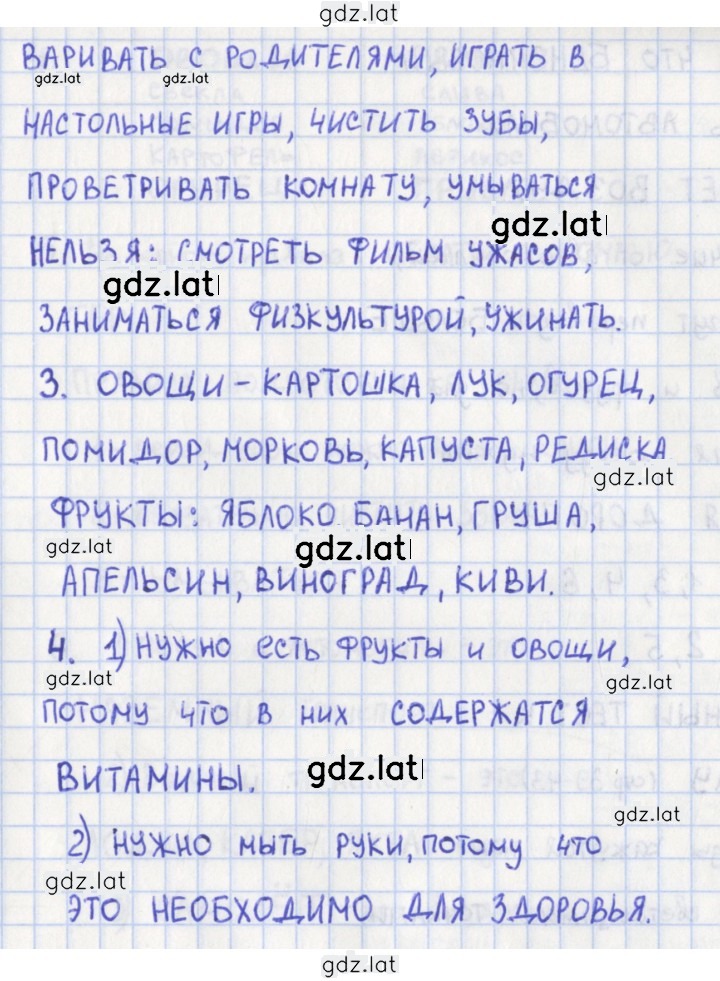 gdz.lat
ВАРИВАТЬ С РОДИТЕЛЯМИ, ИГРАТЬ В
gdz.lat gdz.lat
НАСТОЛЬНЫЕ ИГРЫ, ЧИСТИТЬ ЗУБЫ,
ПРОВЕТРИВАТЬ КОМНАТУ, УМЫВАТЬСЯ
gdz.lat
НЕЛЬЗЯ: СМОТРЕТЬ ФИЛЬМ УЖАСОВ,
gdz.lat
ЗАНИМАТЬСЯ ФИЗКУЛЬТУРОЙ, УЖИНАТЬ.
3. ОВОЩИ - КАРТОШКА, ЛУК, ОГУРЕЦ,
ПОМИДОР, МОРКОВЬ, КАПУСТА, РЕДИСКА
gdz.lat
ФРУКТЫ: ЯБЛОКО БАНАН, ГРУША,
gdz.lat gdz.lat
АПЕЛЬСИН, ВИНОГРАД, КИВИ.
4. 1) НУЖНО ЕСТЬ ФРУКТЫ И ОВОЩИ,
gdz.lat gdz.lat
ПОТОМУ ЧТО В НИХ СОДЕРЖАТСЯ
ВИТАМИНЫ. gdz.lat
gdz.lat
2) НУЖНО МЫТЬ РУКИ, ПОТОМУ ЧТО
gdz.lat
ЭТО НЕОБХОДИМО ДЛЯ ЗДОРОВЬЯ.
gdz.lat